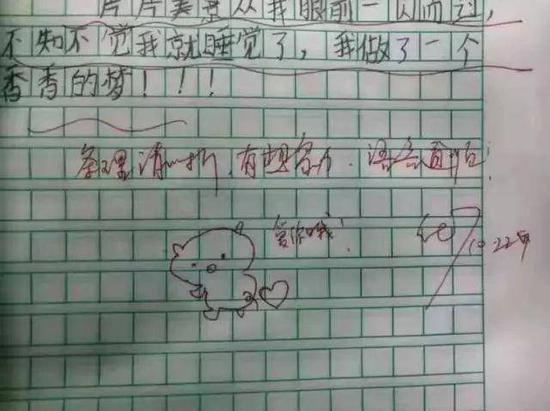 片片美景从我眼前一闪而过,
不知不觉我就睡觉了,我做了一个
香香的梦!!!
条理清晰,有想象力.语句通顺!
爱你哦!
10.22